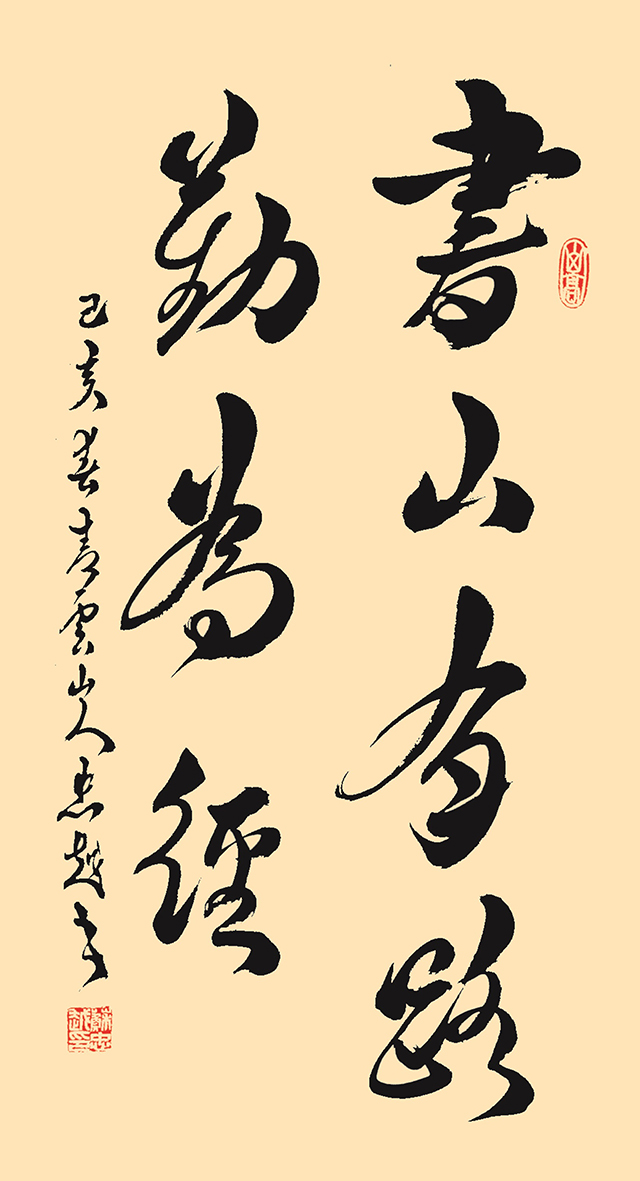 書山有路
勤為徑
己亥春青雲山人忠越書